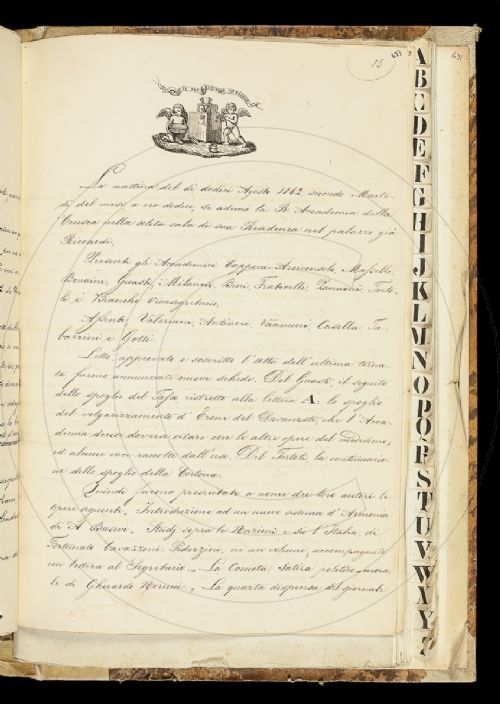 15
631
La mattina del dì dodici Agosto 1862, secondo Marte-
dì del mese a ore dodici, si adunò la R. Accademia della
Crusca nella solita sala di sua Residenza nel palazzo già
Riccardi.
Presenti gli Accademici Capponi Arciconsolo,
Bonaini, Guasti, i Milanesi, Bini, Fraticelli, Zannoni, Torto-
li e Bianchi Vicesegretario.
Assenti, Valeriani, Vannucci, Casella, Ta-
barrini e Gotti.
Letto, approvato e soscritto l'Atto dell'ultima torna-
ta, furono annunziate nuove schede. Del Guasti, il seguito
dello spoglio del Tasso ristretto alla lettera A. lo spoglio
del volgarizzamento d'Erone del Davanzati, che l'Acca-
demia deve doversi citare con le altre opere del
ed alcune voci raccolte dall'uso. Del Tortoli la continuazio-
ne dello spoglio della
Quindi furono presentate a nome dei loro autori le
opere seguenti. Introduzione ad un nuovo sistema d'Armonia
di A. Basevi. Studj sopra le Nazioni e sù l'Italia, di
Fortunato Cavazzoni Pederzini, in un volume, accompagnato
con lettera al Segretario. La Cometa Satira politico-mora-
le di Gherardo Nerucci. La quarta dispensa del giornale
A
B
C
D
E
F
G
H
I
J
K
L
M
N
O
P
Q
R
S
T
U
V
W
X
Y
Z